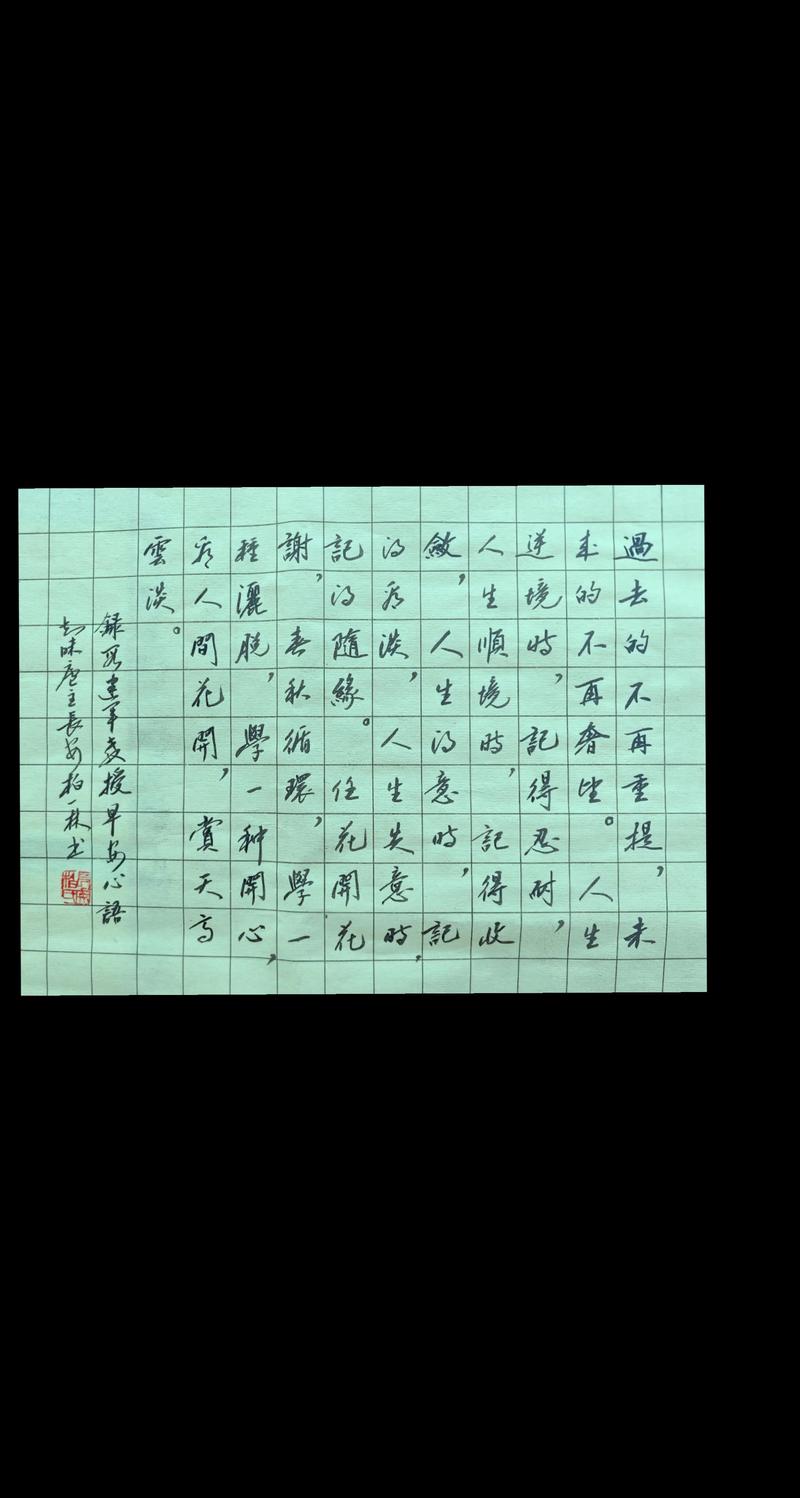 過去的不再重提，未
来的不再奢望。人生
逆境時，記得忍耐，
人生順境時，記得收
斂，人生得意時，記
得看淡，人生失意時，
記得隨緣。任花開花
謝，春秋循環，學一
種灑脱，學一种開心，
看人間花開，賞天高
雲淡。
錄 建軍教授早安心語
知味唐主長安柏一林书